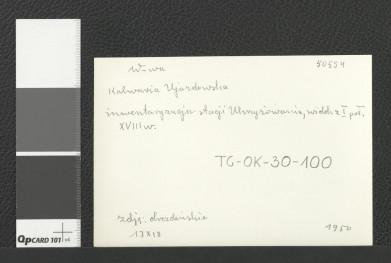 W-wa 50554
Kalwaria Ujazdowska
inwentaryzacja stacji Ukrzyżowania, widok z I poł.
XVIII w.
TG-OK-30-100
zdję. drezdeńskie
13x18 1950
QPCARD 101 v4